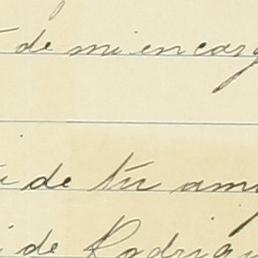 de mi encarg
de tu am
de Rodrigu